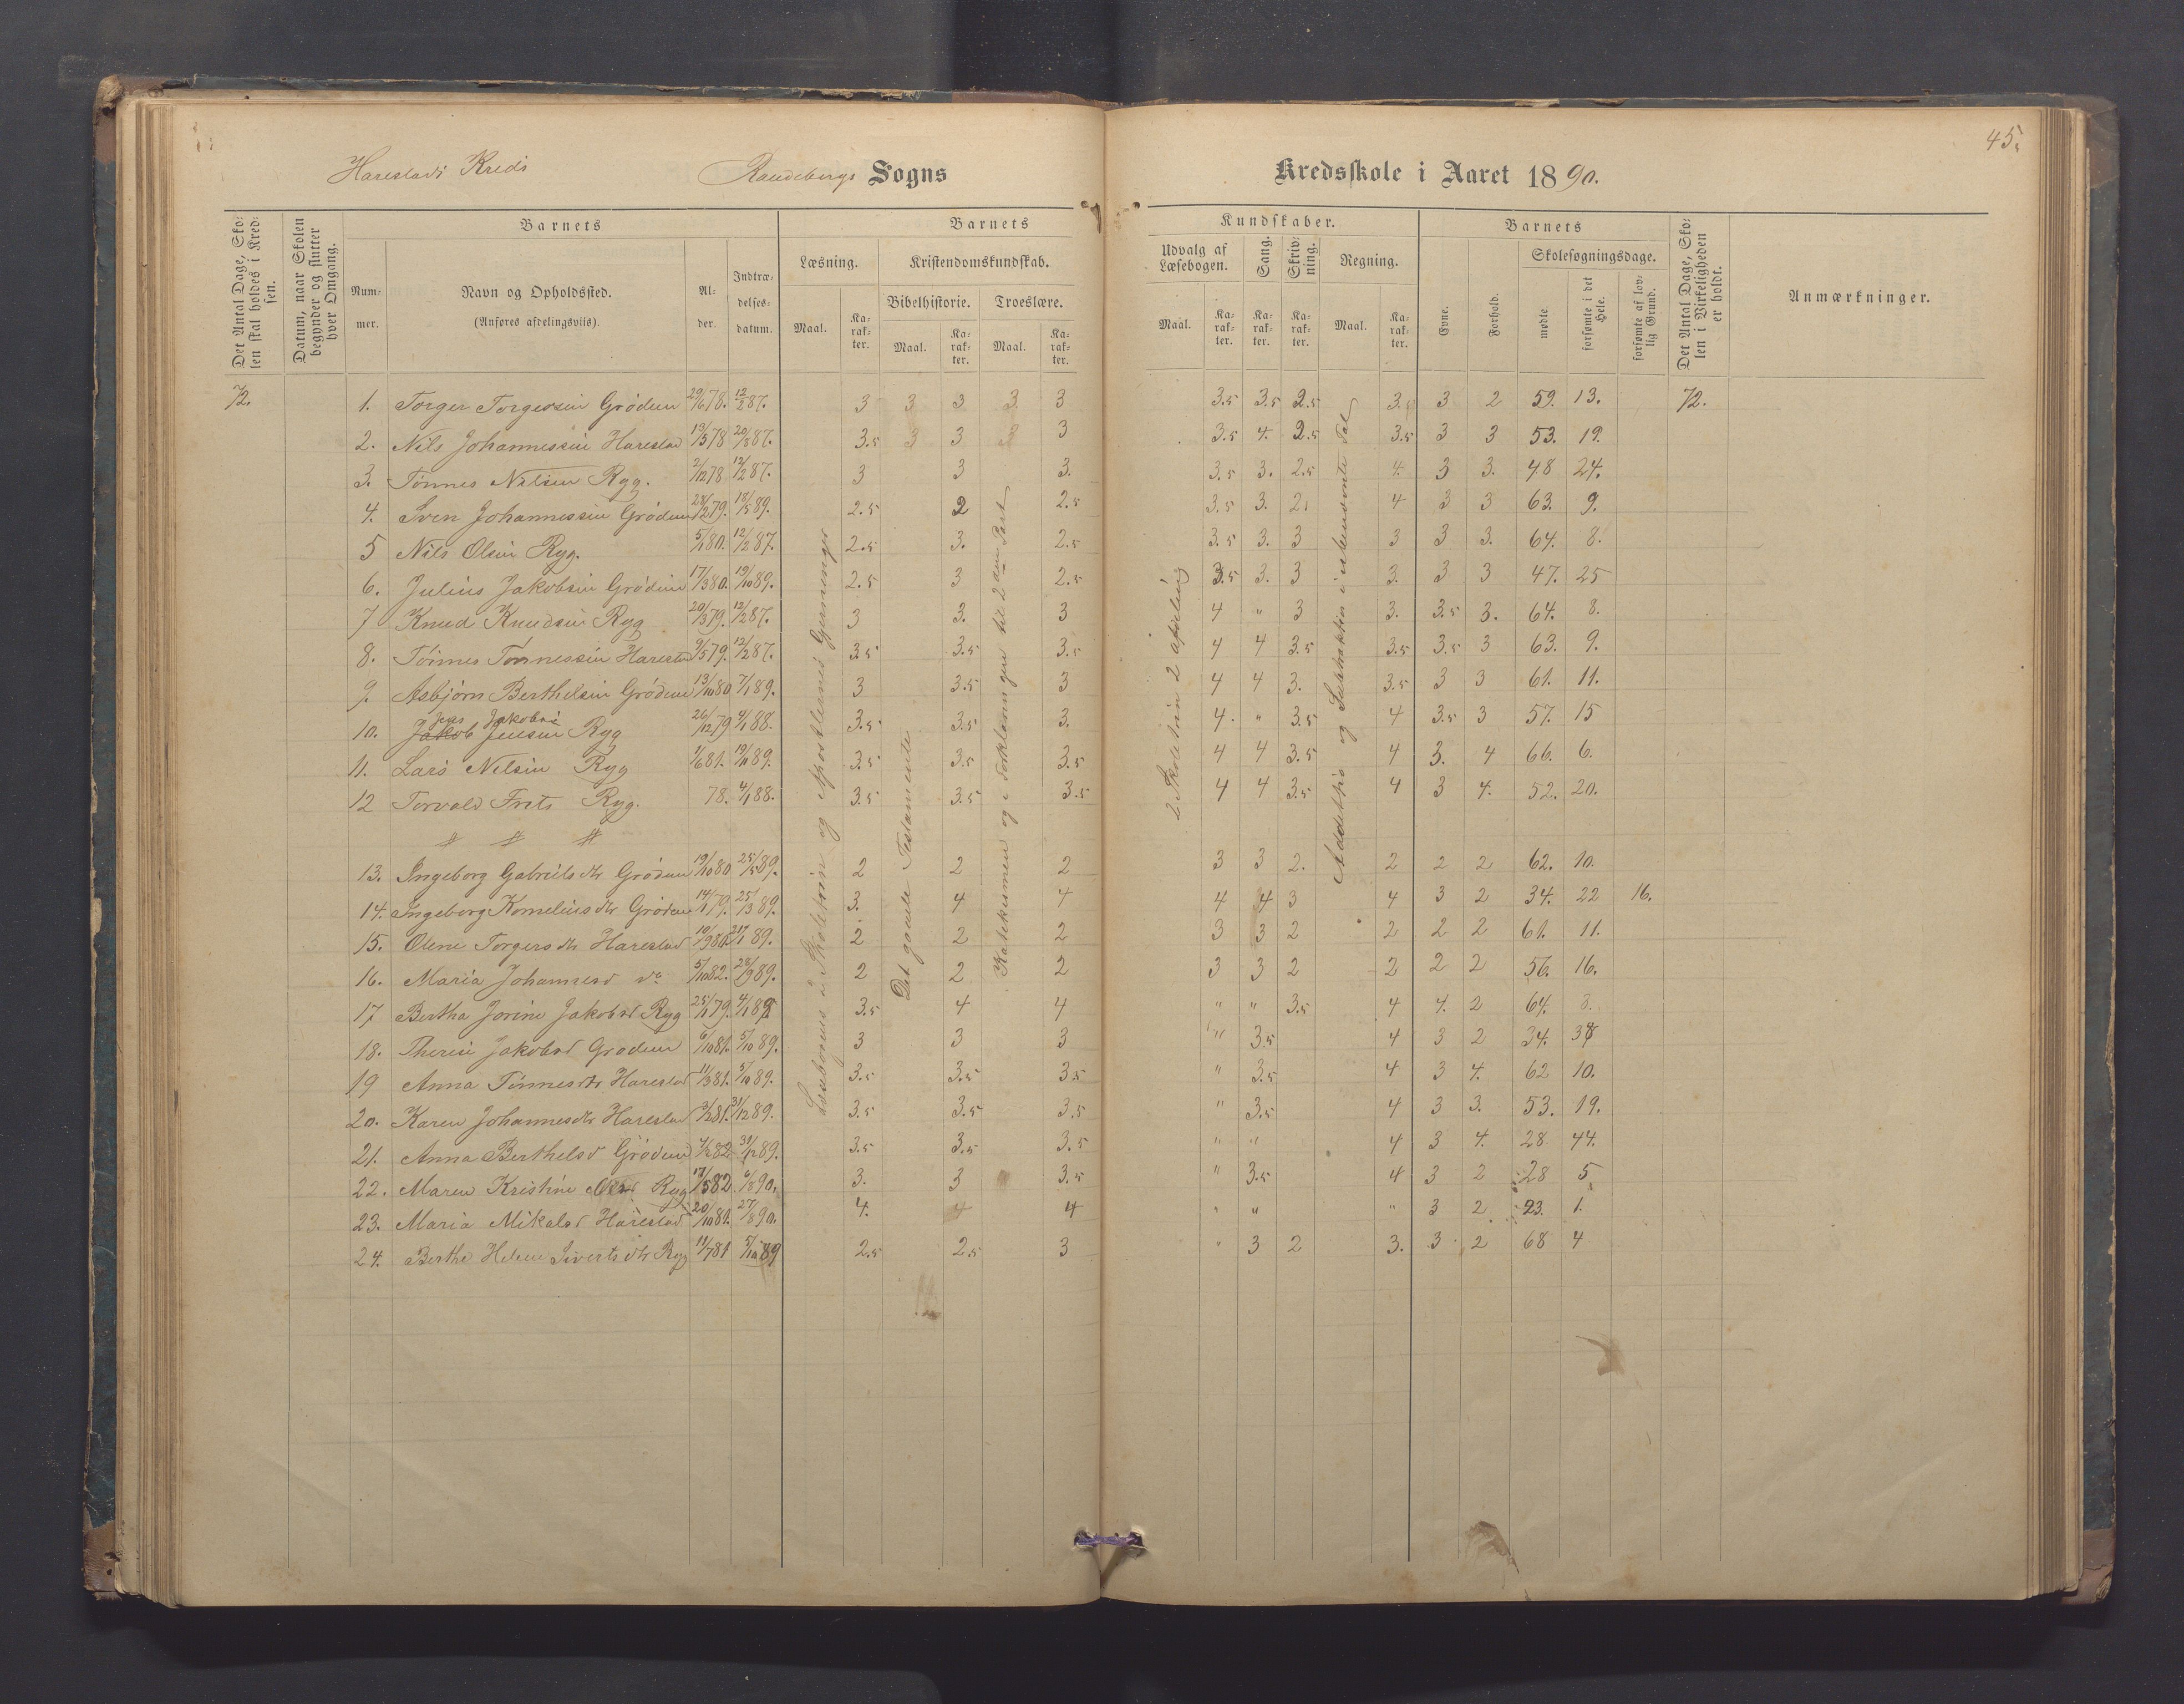 45.
Harestads Kreds Randebergs Sogns Kredsskole i Aaret 1890.
Det Antal Dage, Skolen skal holdes i Kredsen.
Datum, naar Skolen begynder og slutter hver Omgang.
Barnets
Nummer.
Navn og Opholdssted.
(Anføres afdelingsviis).
Alder.
Indtrædelsesdatum.
Barnets
Læsning.
Maal.
Karakter.
Kristendomskundskab.
Bibelhistorie.
Maal.
Karakter.
Troeslære.
Maal.
Karakter.
Kundskaber.
Udvalg af Læsebogen.
Maal.
Karakter.
Sang.
Karakter.
Skrivning.
Karakter.
Regning.
Maal.
Karakter.
Barnets
Evne.
Forhold.
Skolesøgningsdage.
mødte.
forsømte i det Hele.
forsømte af lovlig Grund.
Det Antal Dage, Skolen i Virkeligheden er holdt.
Anmærkninger.
72. 1. Torger Torgersen Gröden 29/6 78. 12/2 87. 3 3 3 3 3 3.5 3.5 2.5 3.5 3 2 59. 13. 72.
2. Nils Johannessen Harestad 19/5 78 20/8 87. 3.5 3 3 3 3 3.5 4. 2.5 3.5 3 3 53. 19.
3. Tönnes Nilsen Ryg. 2/12 78 12/2 87. 3 3 3. 3.5 3. 2.5 4. 3 3. 48 24.
4. Sven Johannessen Gröden 28/2 79. 18/5 89. 2.5 2 2.5 3.5 3. 2. 4 3 3 63. 9.
5 Nils Olsen Ryg. 5/1 80. 12/2 87. 2.5 3. 2.5 3.5 3. 3 3 3 3. 64. 8.
6. Julius Jakobsen Gröden 17/3 80. 19/10 89. 2.5 3 2.5 3.5 3. 3 3. 3 3 47. 25
7 Knud Knudsen Ryg 20/3 79. 12/2 87. 3 3. 3 4 " 3 3. 3.5 3. 64. 8.
8. Tönnes Tönnessen Harestad 9/5 79. 12/2 87. 3.5 3.5 3.5 4 4 3.5 3.5 3.5 3 63. 9.
9. Asbjörn Berthelsen Gröden 13/10 80 7/1 89. 3 3.5 3 4 4 3. 3.5 3 3 61. 11.
Jens Jakobsen
10. Jakob Jensen Ryg 26/12 79 4/1 88. 3.5 3.5 3. 4. " 3.5 4 3.5 3 57. 15
11. Lars Nilsen Ryg 1/6 81. 19/11 89. 3.5 3.5 3.5 4 4 3.5 4 3. 4 66. 6.
12 Torvald Frits Ryg. 78. 4/1 88. 3.5 3.5 3.5 4 4 3.5 4 3 4. 52. 20.
# # #
13. Ingeborg Gabriels dtr Gröden 19/10 80 25/5 89. 2 2 2 3 3 2. 2 2 2 62. 10.
14. Ingeborg Kornelius dtr Gröden 14/1 79. 25/3 89. 3. 4 4 4 4 3 4 3 2 34. 22 16.
15. Olene Torgers dtr Harestad 10/9 80. 21/1 89. 2 2 2 3 3 2 2 2 2 61. 11.
16. Maria Johannesd do 5/10 82. 28/9 89. 2 2 2 3 3 2 2 2 2 56. 16.
17 Bertha Jorine Jakobsd Ryg 25/1 79. 4/1 88 3.5 4 4 " " 3.5 4 4. 2 64. 8.
18. Therese Jakobsd Gröden 6/10 81. 5/10 89. 3 3 3 " 3.5 4 3 2 34. 38
19 Anna Tönnesdtr Harestad 11/3 81. 5/10 89. 3.5 3.5 3.5 " 3.5 4 3 4. 62 10.
20. Karen Johannesdtr Harestad 3/2 81. 31/12 89. 3.5 3.5 3.5 " 3.5 4 3 3. 53. 19.
21. Anna Berthelsd Gröden 4/2 82. 31/12 89. 3.5 3.5 3.5 " " 4 3 4. 28 44.
22. Maren Kristine Olsd Ryg 17/5 82 6/8 90. 3. 3 3.5 " 3.5 4 3 2 28 5
23. Maria Mikalsd Harestad 20/10 81. 27/8 90. 4. 4 4 " " " 3 2 23. 1.
24. Berthe Helene Siverts dtr Ryg 11/7 81 5/10 89 2.5 2.5 3 " 3 2 3. 3 2 68 4
Læsebogens i Skoletrin og Apostlernes Gjerninger
Det gamle Testamente
Katekismen og Forklaringen til 2 den Part
2 Skoletrin 2 afdeling
Addition og Subtraktion i ubenævnte Tal